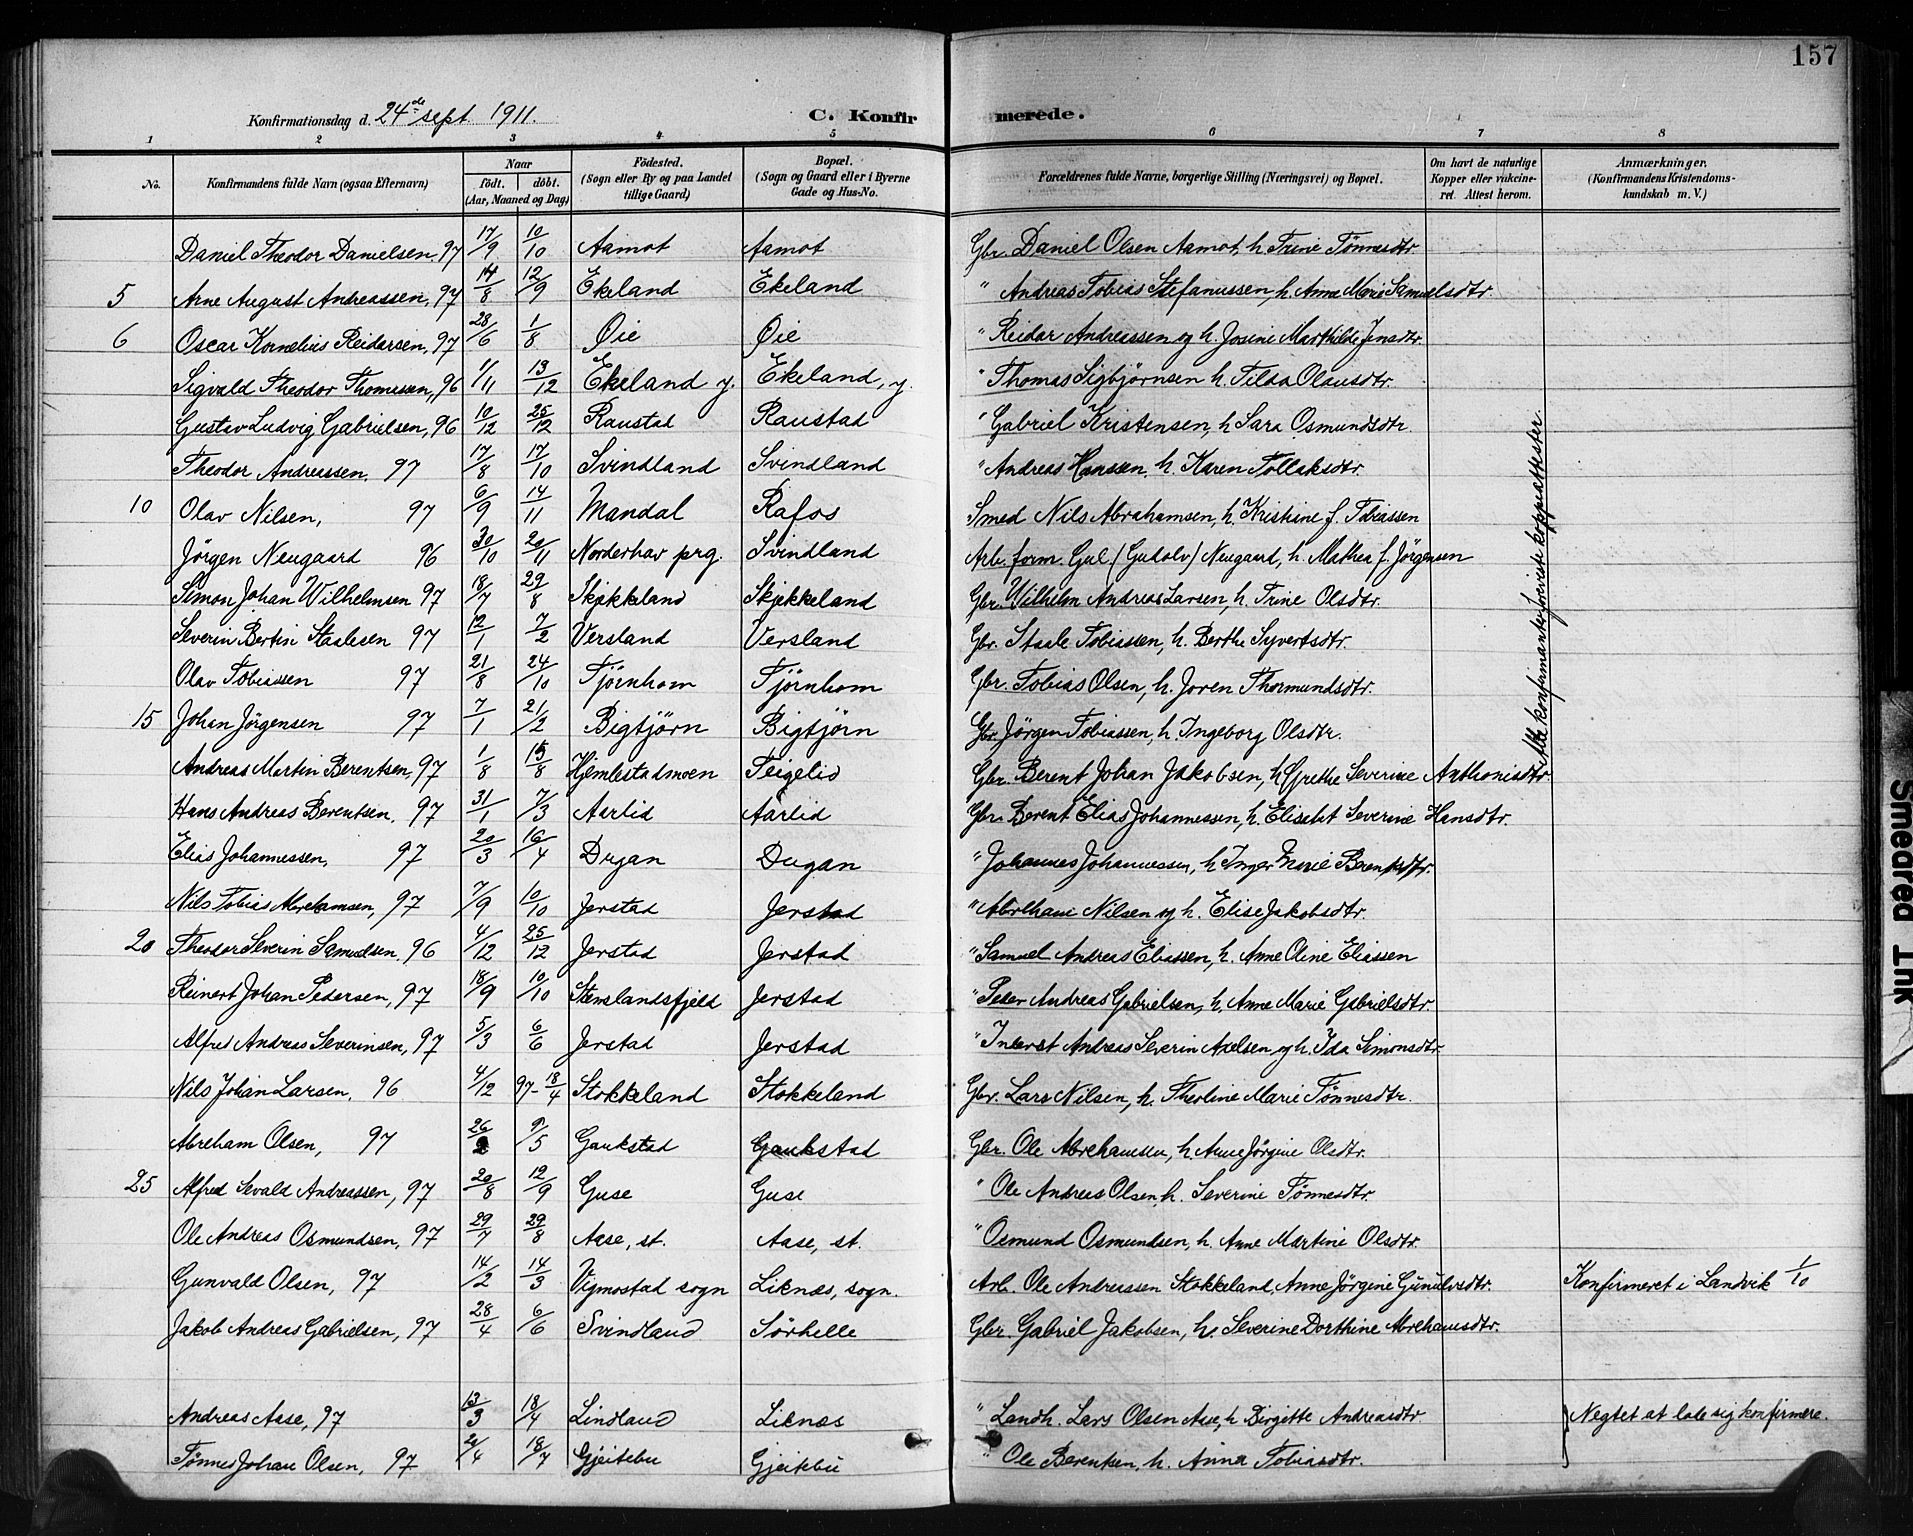 157
Konfirmationsdag d. 24de sept. 1911. C. Konfirmerede.
1 2 3 4 5 6 7 8
No. Konfirmandens fulde Navn (ogsaa Efternavn) Naar født. døbt. (Aar, Maaned og Dag) Födested. (Sogn eller By og paa Landet tillige Gaard) Bopæl. (Sogn og Gaard eller i Byerne Gade og Hus-No. Forældrenes fulde Navne, borgerlige Stilling (Næringsvei) og Bopæl. Om havt de naturlige Kopper eller vakcineret. Attest herom. Anmærkninger. (Konfirmandens Kristendomskundskab m. V.)
Daniel Theodor Danielsen 97 17/9 10/10 Aamot Aamot Gbr. Daniel Olsen Aamot, h. Trine Tønnesdtr.
5 Arne August Andreassen, 97 14/8 12/9 Ekeland Ekeland " Andreas Tobias Stefanussen, h. Anne Marie Samuelsdtr.
6 Oscar Kornelius Reidarsen, 97 28/6 1/8 Øie Øie " Reidar Andreassen og h. Josine Marthilde Jensdtr.
Sigvald Theodor Thomassen, 96 1/11 13/12 Ekeland y. Ekeland, y. " Thomas Sigbjørnsen h. Tilda Olausdtr.
Gustav Ludvig Gabrielsen, 96 10/12 25/12 Raustad Raustad " Gabriel Kristensen, h. Sara Osmundsdtr.
Theodor Andreassen, 97 17/8 17/10 Svindland Svindland " Andreas Hanssen, h. Karen Tollaksdtr.
10 Olav Nilsen, 97 6/9 14/11 Mandal Rafos Smed Nils Abrahamsen, h. Kristine f. Tobiassen
Jørgen Neugaard 96 30/10 20/11 Norderhav prg. Svindland Arb. form. Gul (Gudolv) Neugaard, h. Mathea f. Jørgensen
Simon Johan Wilhelmsen 97 18/7 29/8 Skjekkeland Skjekkeland Gbr. Wilhelm Andreas Larsen, h. Trine Olsdtr.
Severin Bertin Staalesen 97 12/1 7/2 Versland Versland Gbr. Staale Tobiassen, h. Berthe Syvertsdtr.
Olav Tobiassen 97 21/8 24/10 Tjørnhom Tjørnhom Gbr. Tobias Olsen, h. Joren Thormundsdtr.
15 Johan Jørgensen 97 7/1 21/2 Bigtjörn Bigtjörn Gbr. Jørgen Tobiassen, h. Ingeborg Olsdtr.
Andreas Martin Berentsen, 97 1/8 15/8 Hjemlestadmoen Teigelid Gbr. Berent Johan Jakobsen, h. Grethe Severine Anthonisdtr.
Hans Andreas Berentsen, 97 31/1 7/3 Aarlid Aarlid Gbr. Berent Elias Johannessen, h. Elisebet Severine Hansdtr.
Elias Johannessen, 97 20/3 16/4 Dugan Dugan " Johannes Johannessen, h. Inger Marie Berentsdtr.
Nils Tobias Abrehamsen, 97 7/9 10/10 Jerstad Jerstad " Abreham Nilsen og h. Elise Jakobsdtr.
20 Theodor Severin Samuelsen, 96 4/12 25/12 Jerstad Jerstad " Samuel Andreas Eliassen, h. Anne Oline Eliassen
Reinert Johan Pedersen, 97 18/9 10/10 Stenslandsfjeld Jerstad " Peder Andreas Gabrielsen, h. Anne Marie Gabrielsdtr.
Alfred Andreas Severinsen, 97 5/3 6/6 Jerstad Jerstad " Inderst Andreas Severin Axelsen, og h. Ida Simonsdtr.
Nils Johan Larsen, 96 4/12 97-18/4 Stokkeland Stokkeland Gbr. Lars Nilsen, h. Theoline Marie Tønnesdtr.
Abreham Olsen, 97 26/2 9/5 Gaukstad Gaukstad Gbr. Ole Abrehamsen, h. Anne Jørgine Olsdtr.
25 Alfred Sevald Andreassen, 97 20/8 12/9 Guse Guse " Ole Andreas Olsen, h. Severine Tønnesdtr.
Ole Andreas Osmundsen, 97 29/7 29/8 Aase, st. Aase, st. " Osmund Osmundsen, h. Anne Martine Olsdtr.
Gunvald Olsen, 97 14/2 14/3 Vigmostad sogn Liknes, sogn. Arb. Ole Andreassen Stokkeland, Anne Jørgine Gunulvsdtr. Konfirmeret i Landvik 1/10
Jakob Andreas Gabrielsen, 97 28/4 6/6 Svindland Sørhelle Gbr. Gabriel Jakobsen, h. Severine Dorthine Abrehamsdtr.
Andreas Aase, 97 13/3 18/4 Lindland Liknes " Landh. Lars Olsen Aase, h. Birgitte Andreasdtr. Negtet at lade sig konfirmere.
Tønnes Johan Olsen, 97 20/4 18/7 Gjeitebu Gjeitebu " Ole Berentsen, h. Anna Tobiasdtr.
Alle konfirmanter foreviste koppeattester.
Smeared Ink